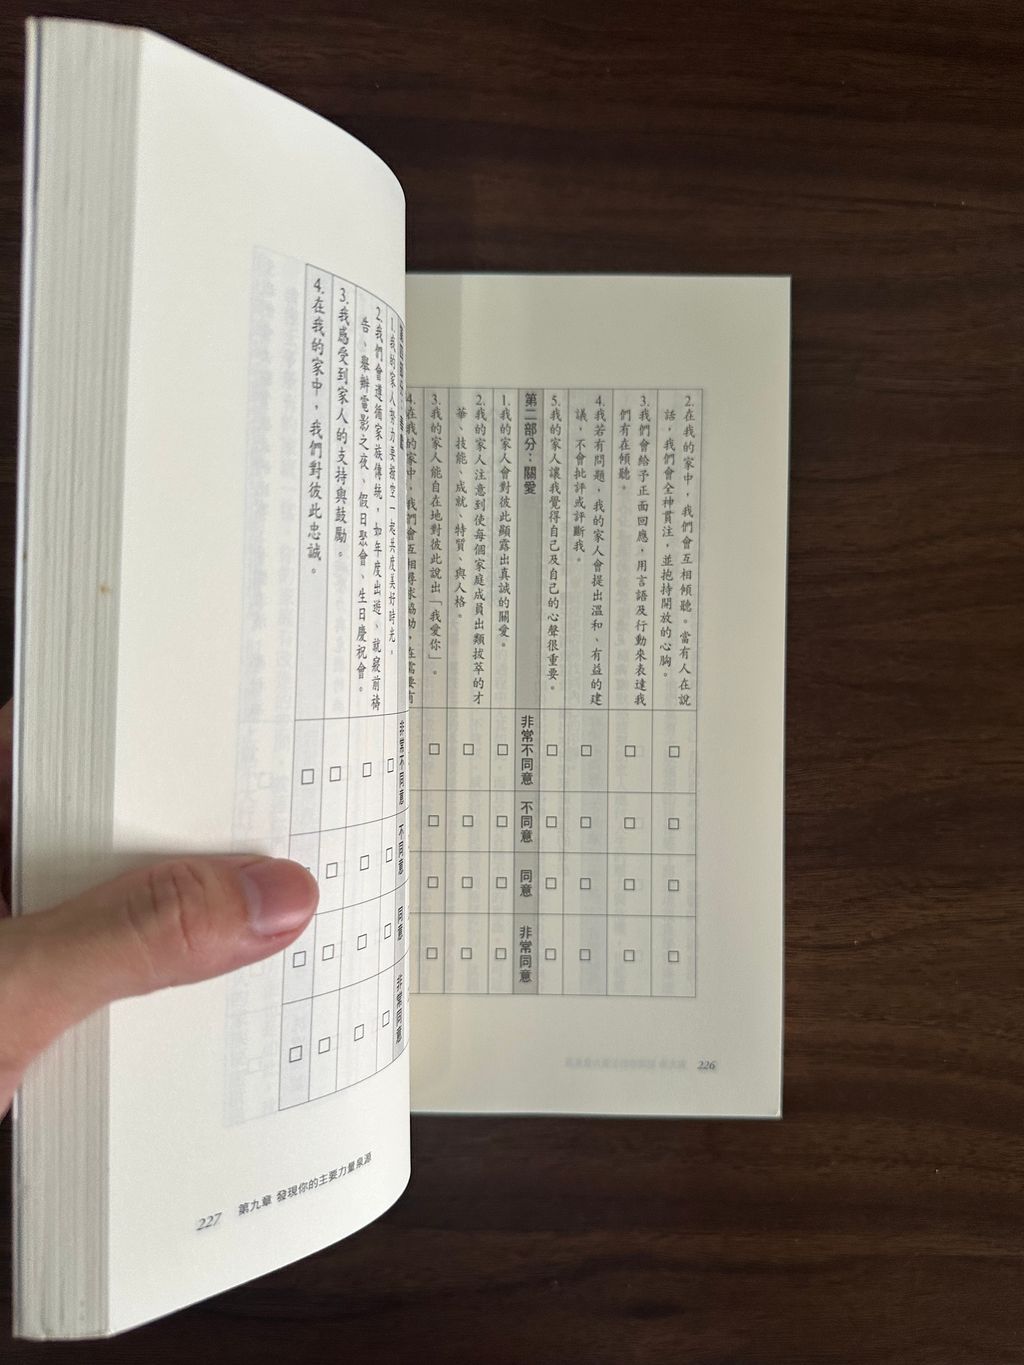 2.在我的家中，我們會互相傾聽。當有人在說
話，我們會全神貫注，並抱持開放的心胸。
3.我們會給予正面回應，用言語及行動來表達我
們有在傾聽。
4.我若有問題，我的家人會提出溫和、有益的建
議，不會批評或評斷我。
5.我的家人讓我覺得自己及自己的心聲很重要。
第二部分：關愛 非常不同意 不同意 同意 非常同意
1.我的家人會對彼此顯露出真誠的關愛。
2.我的家人注意到使每個家庭成員出類拔萃的才
華、技能、成就、特質、與人格。
3.我的家人能自在地對彼此說出「我愛你」。
4.在我的家中，我們會互相尋求協助，在需要有
226
非常不同意 不同意 同意 非常同意
1.我的家人努力要撥空一起共度美好時光。
2.我們會遵循家族傳統，如年度出遊、就寢前禱
告、舉辦電影之夜、假日聚會、生日慶祝會。
3.我感受到家人的支持與鼓勵。
4.在我的家中，我們對彼此忠誠。
227 第九章 發現你的主要力量泉源